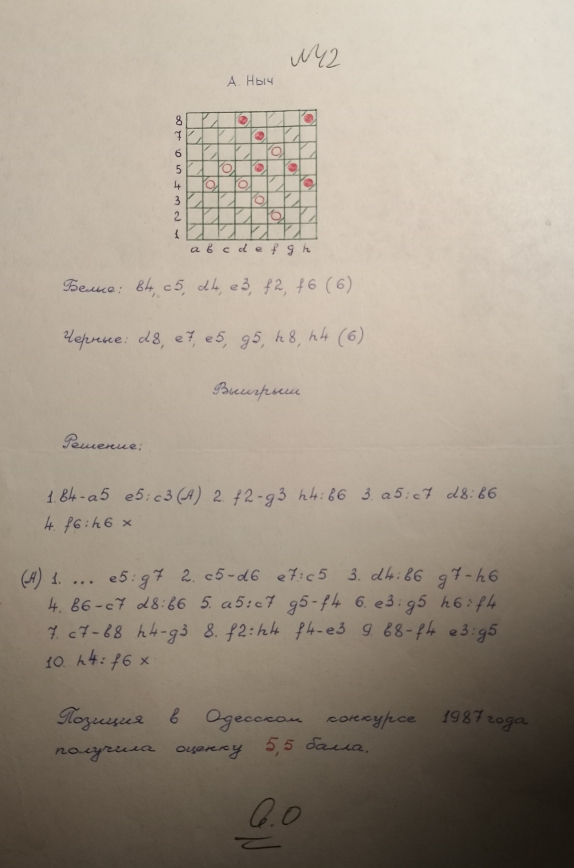 №42
А. Ныч
8
7
6
5
4
3
2
1
a b c d e f g h
Белые: b4, c5, d4, e3, f2, f6 (6)
Черные: d8, e7, e5, g5, h8, h4 (6)
Выигрыш
Решение:
1. b4-a5 e5:c3 (А) 2. f2-g3 h4:b6 3. a5:c7 d8:b6
4. f6:h6 ×
(А) 1. ... e5:g7 2. c5-d6 e7:c5 3. d4:b6 g7-h6
4. b6-c7 d8:b6 5. a5:c7 g5-f4 6. e3:g5 h6:f4
7. c7-b8 h4-g3 8. f2:h4 f4-e3 9. b8-f4 e3:g5
10. h4:f6 ×
Позиция в Одесском конкурсе 1987 года
получила оценку 5,5 балла.
6.0